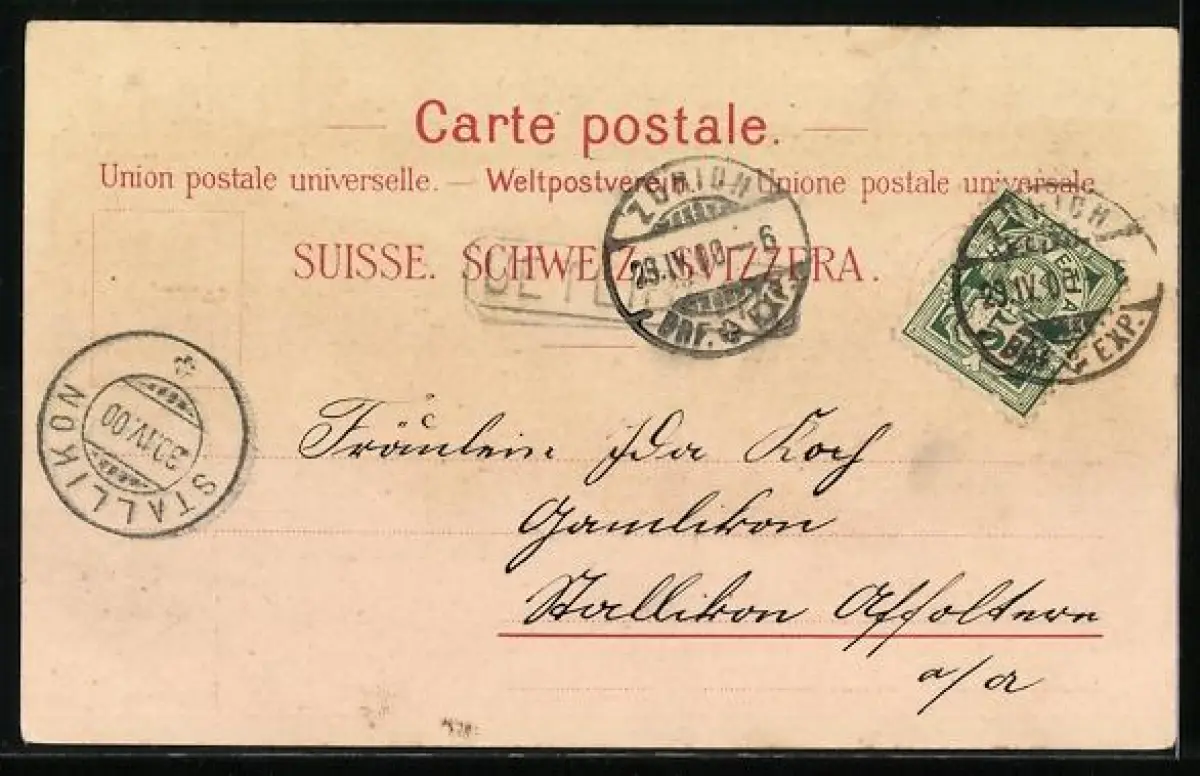 Carte postale.
Union postale universelle. — Weltpostverein. — Unione postale universale
SUISSE. SCHWEIZ. SVIZZERA.
ZÜRICH
29.IV.00 – 6
BRF. EXP.
ZÜRICH
HELVETIA
29.IV.00
5
BRF. EXP.
STALLIKON
30.IV.00
Fräulein Ida Koch
Gamlikon
Stallikon Affoltern
a/a